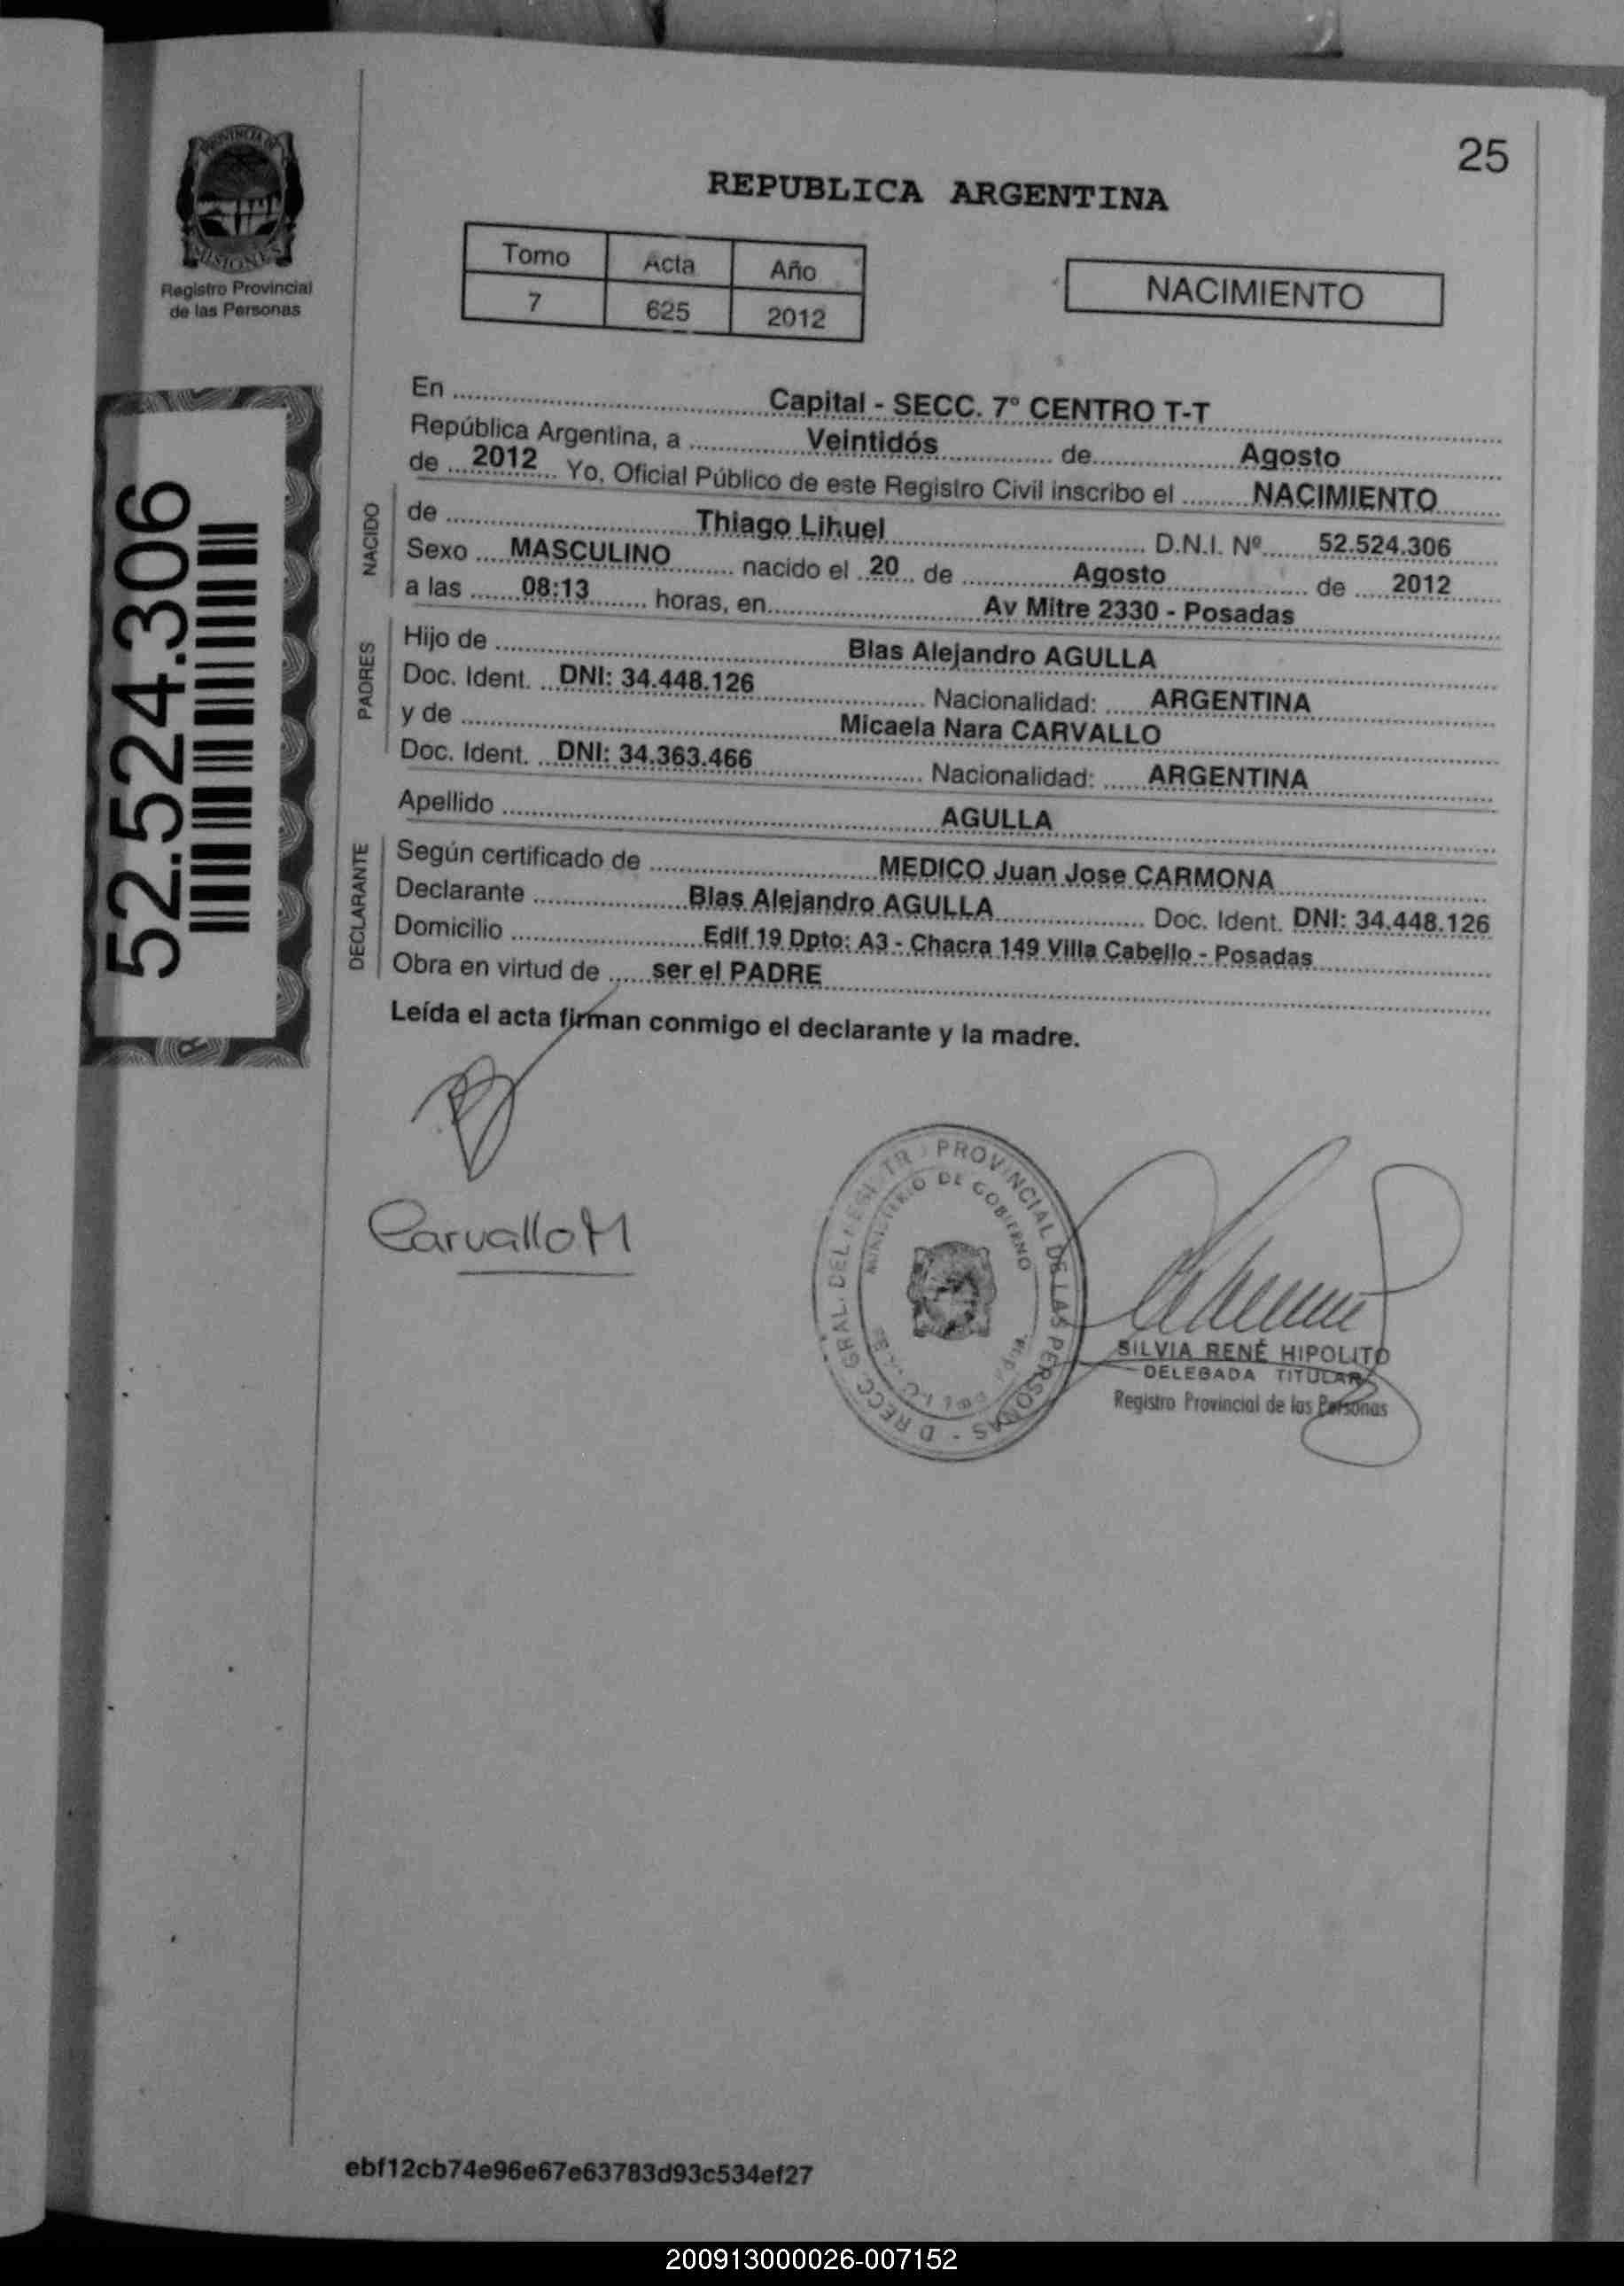 25
PROVINCIA DE
MISIONES
Registro Provincial
de las Personas
REPUBLICA ARGENTINA
Tomo Acta Año
7 625 2012
NACIMIENTO
52.524.306
En Capital - SECC. 7º CENTRO T-T
República Argentina, a Veintidós de Agosto
de 2012 Yo, Oficial Público de este Registro Civil inscribo el NACIMIENTO
NACIDO
de Thiago Lihuel D.N.I. Nº 52.524.306
Sexo MASCULINO nacido el 20 de Agosto de 2012
a las 08:13 horas, en Av Mitre 2330 - Posadas
PADRES
Hijo de Blas Alejandro AGULLA
Doc. Ident. DNI: 34.448.126 Nacionalidad: ARGENTINA
y de Micaela Nara CARVALLO
Doc. Ident. DNI: 34.363.466 Nacionalidad: ARGENTINA
Apellido AGULLA
DECLARANTE
Según certificado de MEDICO Juan Jose CARMONA
Declarante Blas Alejandro AGULLA Doc. Ident. DNI: 34.448.126
Domicilio Edif 19 Dpto: A3 - Chacra 149 Villa Cabello - Posadas
Obra en virtud de ser el PADRE
Leída el acta firman conmigo el declarante y la madre.
Carvallo M
PROVINCIAL DE LAS PERSONAS
GRAL. DEL
DE GOBIERNO
SILVIA RENÉ HIPOLITO
DELEGADA TITULAR
Registro Provincial de las Personas
ebf12cb74e96e67e63783d93c534ef27
200913000026-007152